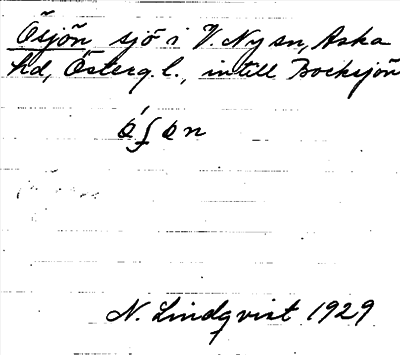 Ösjön sjö i V. Ny sn, Aska
hd, Österg. l., intill Bocksjön
ǿʃøn
N. Lindqvist 1929